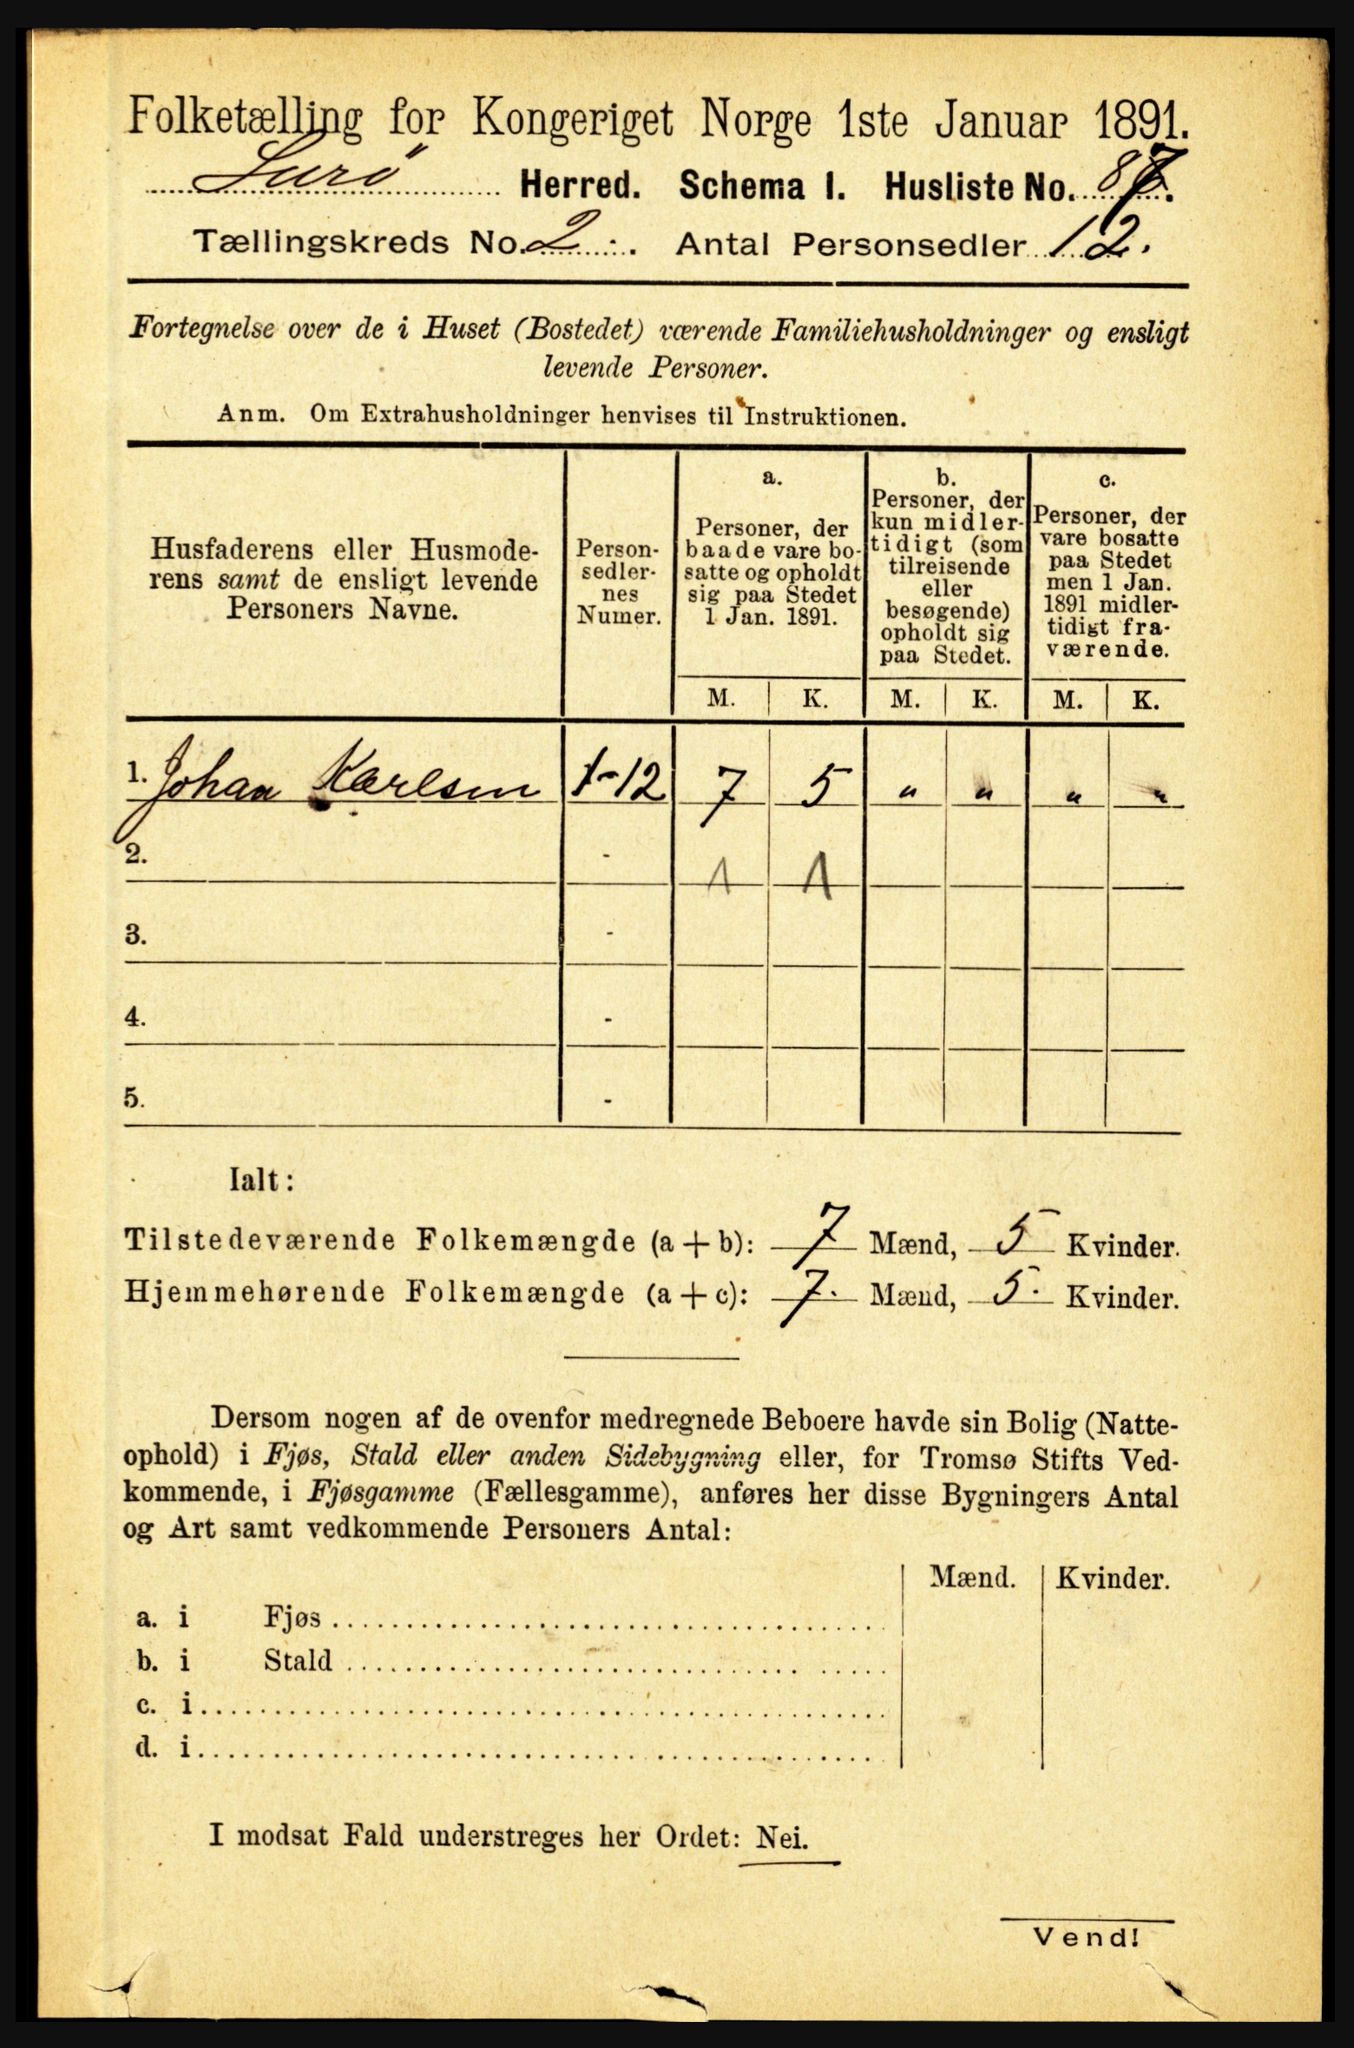 Folketælling for Kongeriget Norge 1ste Januar 1891.
Lurö Herred. Schema I. Husliste No. 87.
Tællingskreds No. 2. Antal Personsedler 12.
Fortegnelse over de i Huset (Bostedet) værende Familiehusholdninger og ensligt
levende Personer.
Anm. Om Extrahusholdninger henvises til Instruktionen.
Husfaderens eller Husmode-
rens samt de ensligt levende
Personers Navne.
Person-
sedler-
nes
Numer.
a.
Personer, der
baade vare bo-
satte og opholdt
sig paa Stedet
1 Jan. 1891.
b.
Personer, der
kun midler-
tidigt (som
tilreisende
eller
besøgende)
opholdt sig
paa Stedet.
c.
Personer, der
vare bosatte
paa Stedet
men 1 Jan.
1891 midler-
tidigt fra-
værende.
M. K. M. K. M. K.
1. Johan Karlsen 1-12 7 5 " " " "
2. - 1 1
3. -
4. -
5. -
Ialt:
Tilstedeværende Folkemængde (a + b): 7 Mænd, 5 Kvinder.
Hjemmehørende Folkemængde (a + c): 7. Mænd, 5. Kvinder.
Dersom nogen af de ovenfor medregnede Beboere havde sin Bolig (Natte-
ophold) i Fjøs, Stald eller anden Sidebygning eller, for Tromsø Stifts Ved-
kommende, i Fjøsgamme (Fællesgamme), anføres her disse Bygningers Antal
og Art samt vedkommende Personers Antal:
Mænd. Kvinder.
a. i Fjøs
b. i Stald
c. i
d. i
I modsat Fald understreges her Ordet: Nei.
Vend!